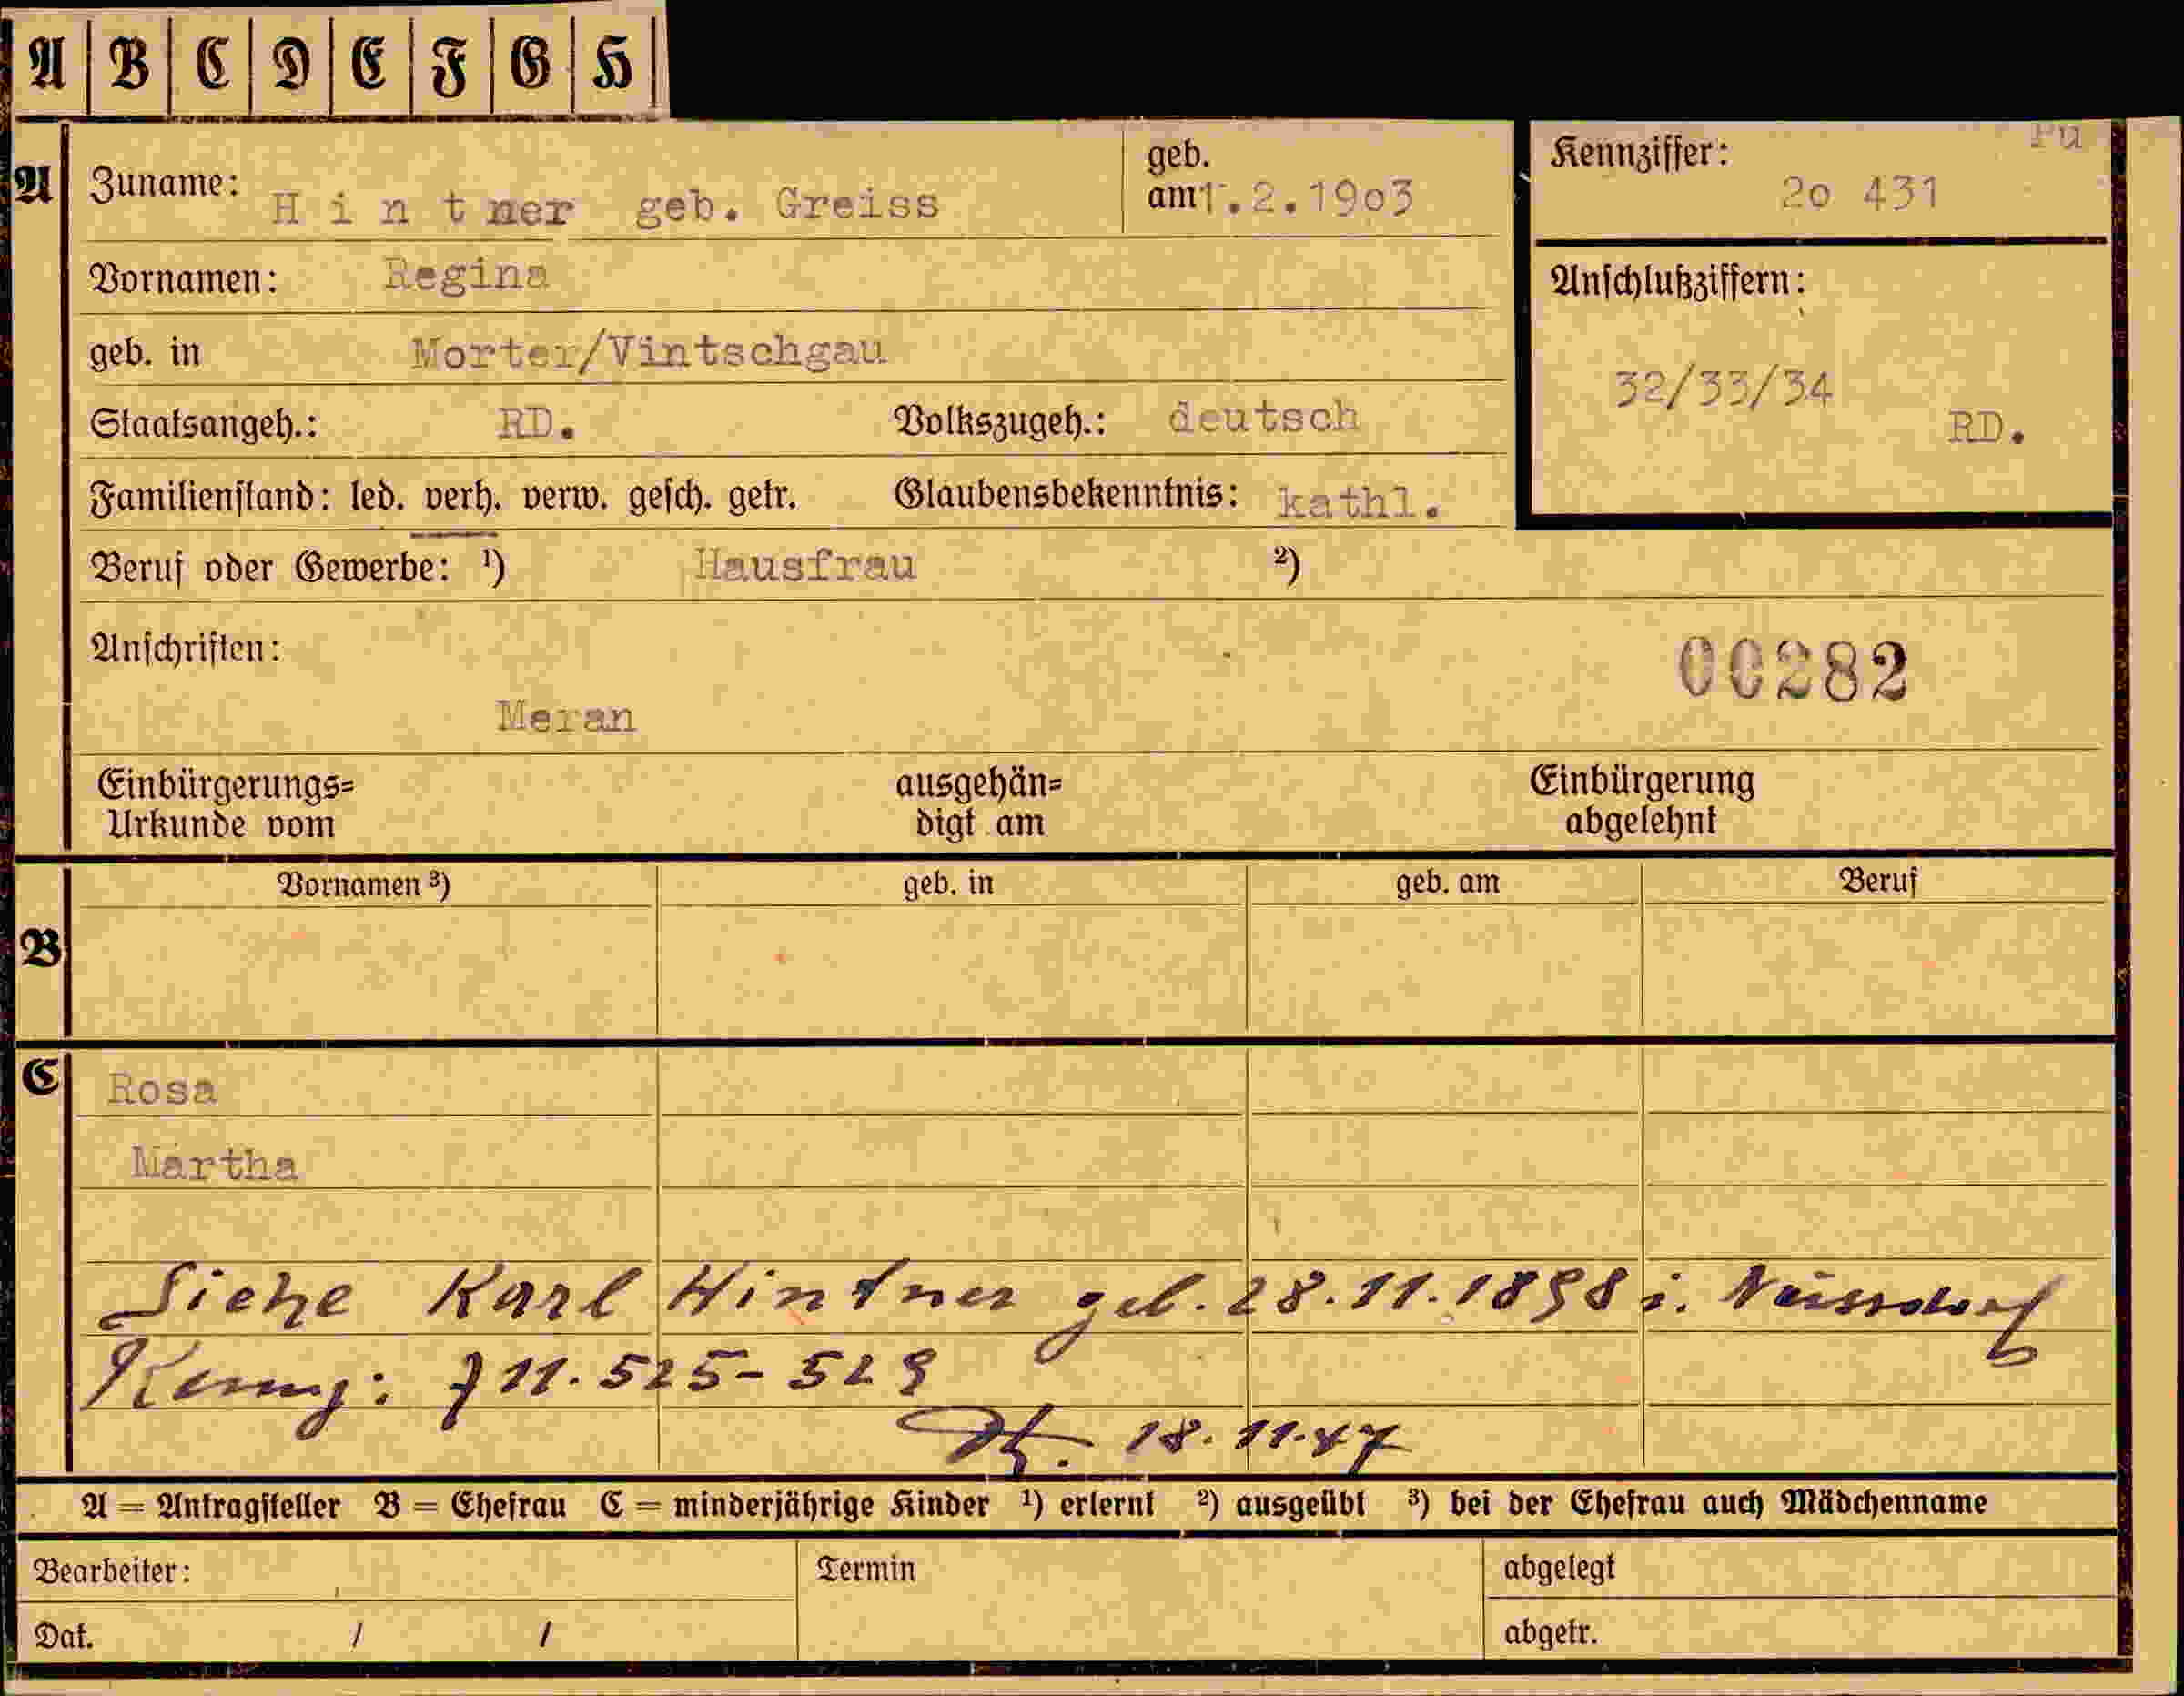 A B C D E F G H
A Zuname: Hintner geb. Greiss geb. am 1.2.1903
Kennziffer: 2o 431
Vornamen: Regina
Anschlußziffern:
geb. in Morter/Vintschgau
32/33/34
Staatsangeh.: RD. Volkszugeh.: deutsch
RD.
Familienstand: led. verh. verw. gesch. getr. Glaubensbekenntnis: kathl.
Beruf oder Gewerbe: ¹) Hausfrau ²)
Anschriften:
00282
Meran
Einbürgerungs= ausgehän= Einbürgerung
Urkunde vom digt am abgelehnt
Vornamen ³) geb. in geb. am Beruf
B
C Rosa
Martha
Siehe Karl Hintner geb. 28.11.1898 i.
11.525-529
18.11.47
A = Antragsteller B = Ehefrau C = minderjährige Kinder ¹) erlernt ²) ausgeübt ³) bei der Ehefrau auch Mädchenname
Bearbeiter: Termin abgelegt
Dat. / / abgetr.